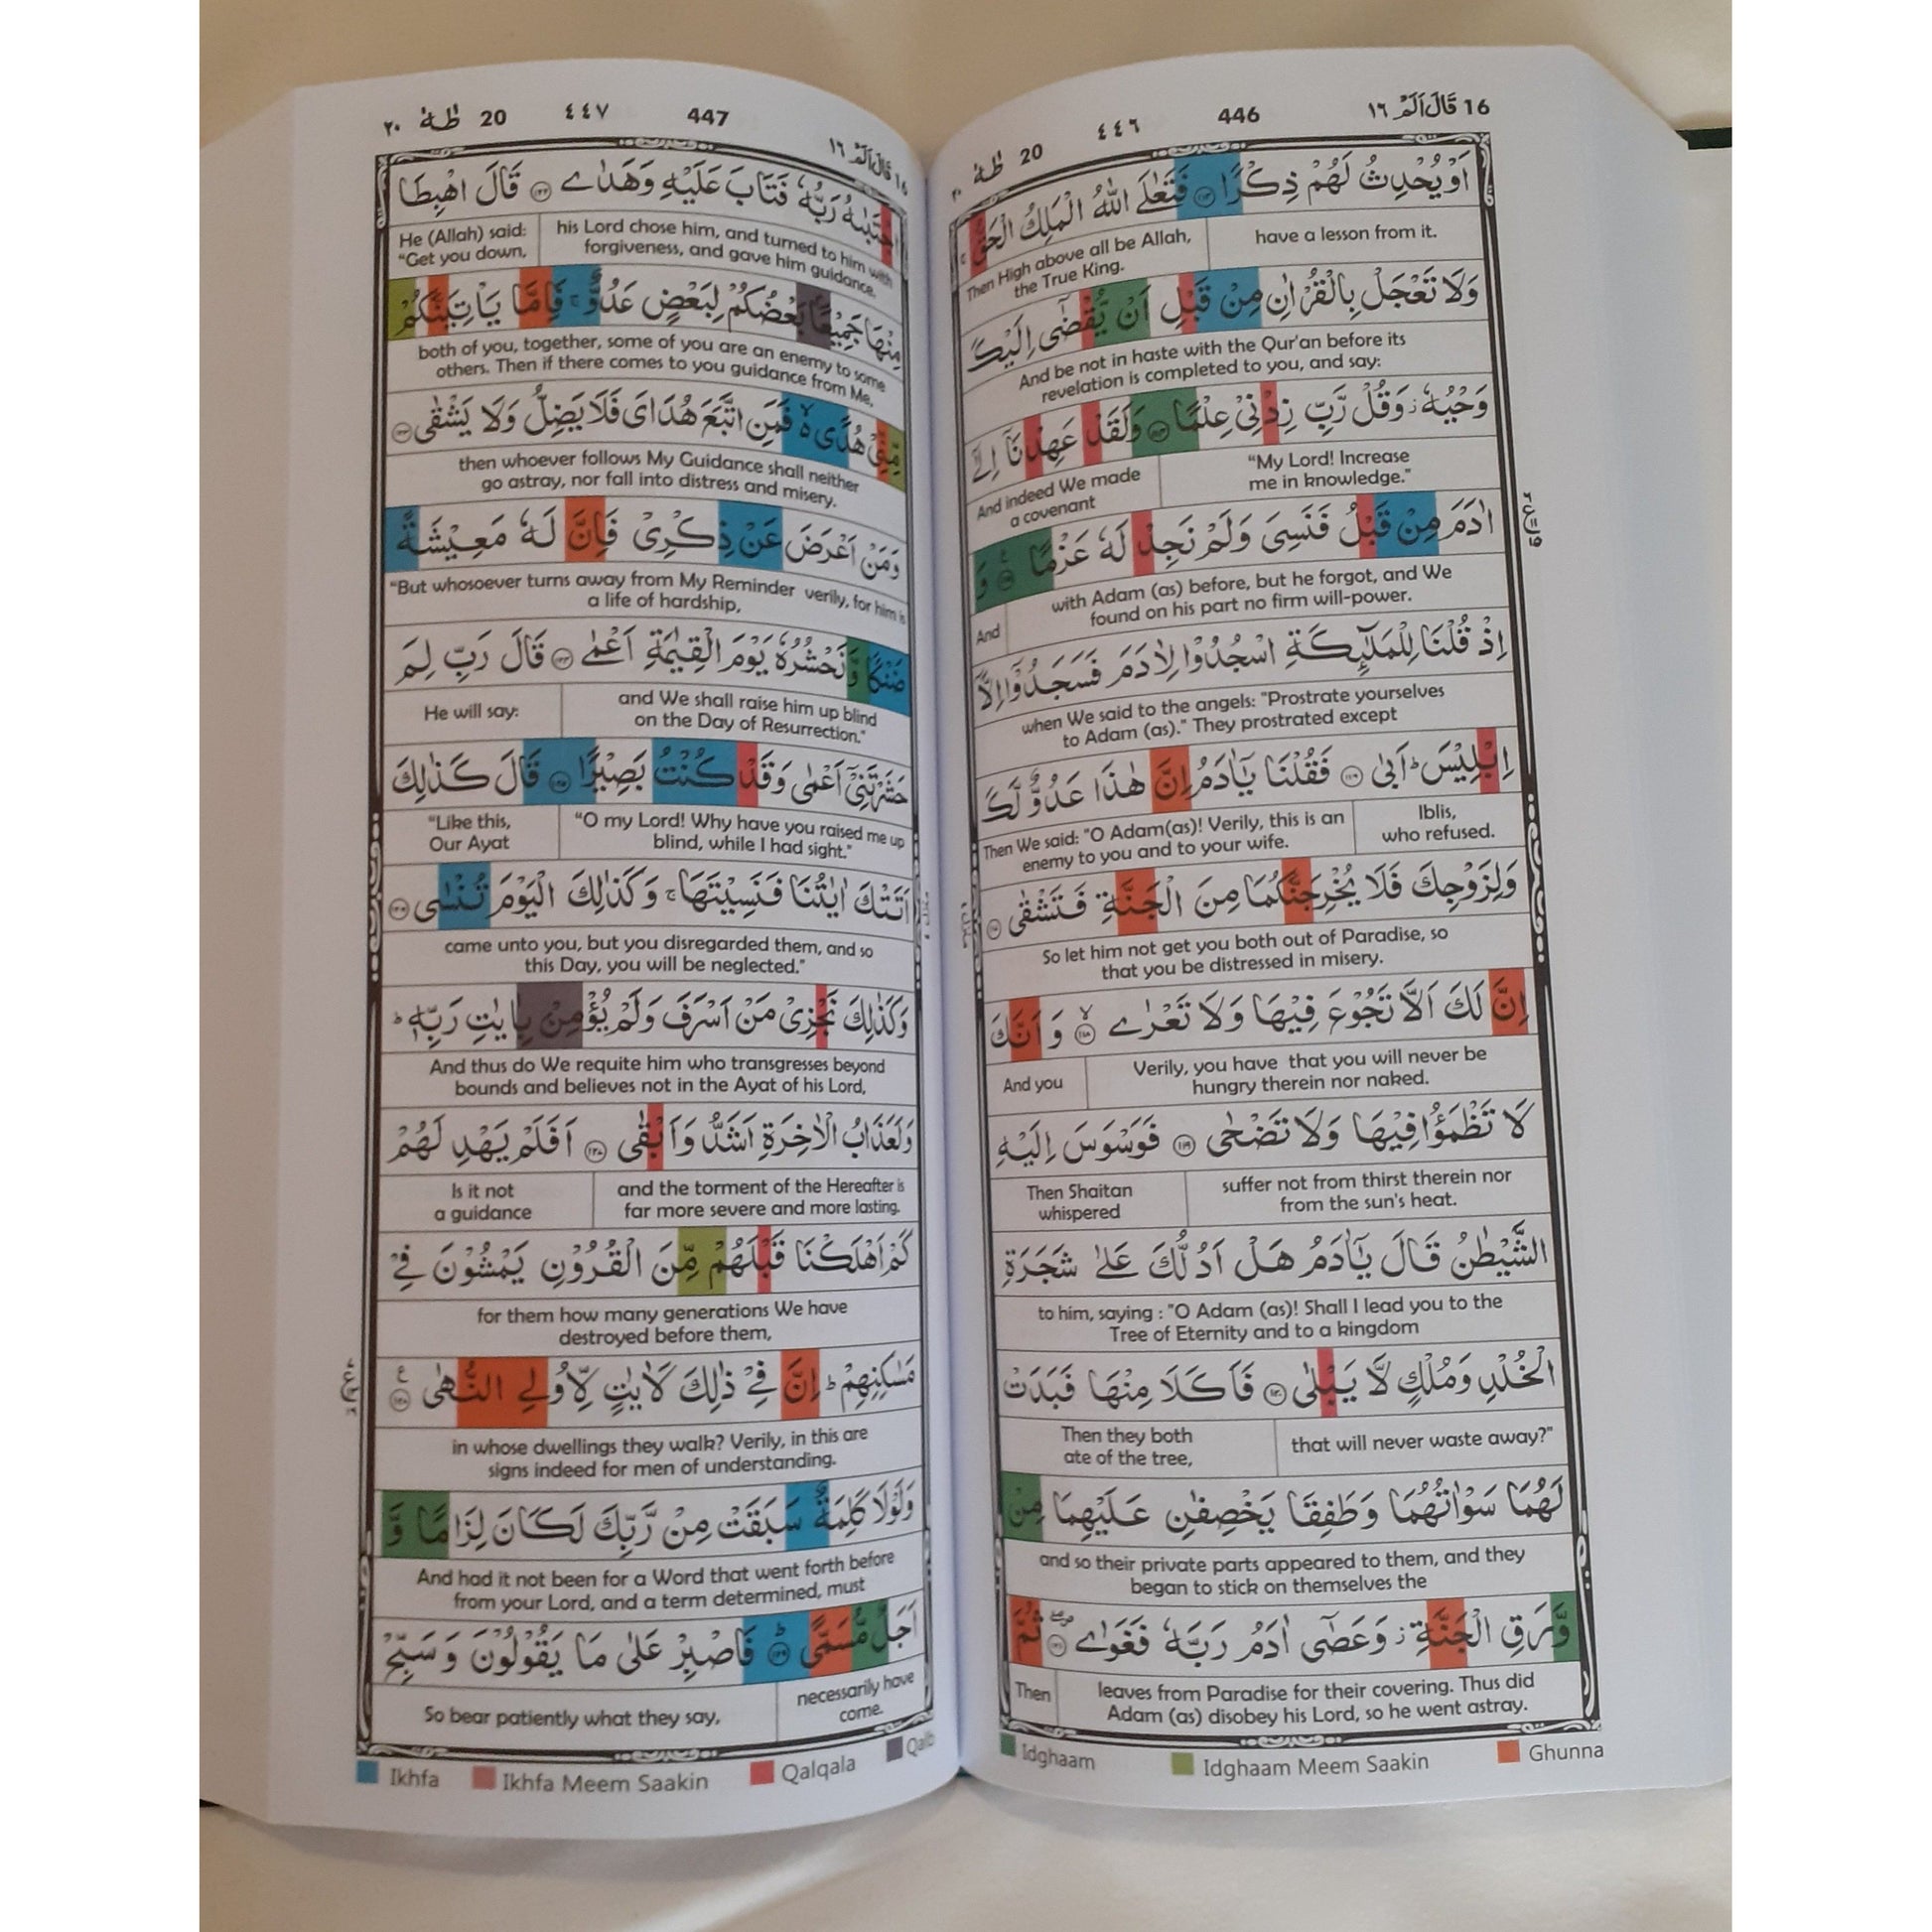 16 قَالَ اَلَمْ ١٦ 446 ٤٤٦ 20 طٰهٰ ٢٠
اَوْ يُحْدِثُ لَهُمْ ذِكْرًا ﴿١١٣﴾ فَتَعٰلَى اللّٰهُ الْمَلِكُ الْحَقُّ ۚ
have a lesson from it.
Then High above all be Allah,
the True King.
وَلَا تَعْجَلْ بِالْقُرْاٰنِ مِنْ قَبْلِ اَنْ يُّقْضٰٓى اِلَيْكَ
And be not in haste with the Qur'an before its
revelation is completed to you, and say:
وَحْيُهٗ ۫ وَقُلْ رَّبِّ زِدْنِيْ عِلْمًا ﴿١١٤﴾ وَلَقَدْ عَهِدْنَآ اِلٰٓى
"My Lord! Increase
me in knowledge."
And indeed We made
a covenant
اٰدَمَ مِنْ قَبْلُ فَنَسِيَ وَلَمْ نَجِدْ لَهٗ عَزْمًا ﴿١١٥﴾ وَ
with Adam (as) before, but he forgot, and We
found on his part no firm will-power.
And
اِذْ قُلْنَا لِلْمَلٰٓئِكَةِ اسْجُدُوْا لِاٰدَمَ فَسَجَدُوْٓا اِلَّآ
when We said to the angels: "Prostrate yourselves
to Adam (as)." They prostrated except
اِبْلِيْسَ ؕ اَبٰى ﴿١١٦﴾ فَقُلْنَا يٰٓاٰدَمُ اِنَّ هٰذَا عَدُوٌّ لَّكَ
Iblis,
who refused.
Then We said: "O Adam(as)! Verily, this is an
enemy to you and to your wife.
وَلِزَوْجِكَ فَلَا يُخْرِجَنَّكُمَا مِنَ الْجَنَّةِ فَتَشْقٰى ﴿١١٧﴾
So let him not get you both out of Paradise, so
that you be distressed in misery.
اِنَّ لَكَ اَلَّا تَجُوْعَ فِيْهَا وَلَا تَعْرٰى ﴿١١٨﴾ۙ وَ اَنَّكَ
Verily, you have that you will never be
hungry therein nor naked.
And you
لَا تَظْمَؤُا فِيْهَا وَلَا تَضْحٰى ﴿١١٩﴾ فَوَسْوَسَ اِلَيْهِ
suffer not from thirst therein nor
from the sun's heat.
Then Shaitan
whispered
الشَّيْطٰنُ قَالَ يٰٓاٰدَمُ هَلْ اَدُلُّكَ عَلٰى شَجَرَةِ
to him, saying : "O Adam (as)! Shall I lead you to the
Tree of Eternity and to a kingdom
الْخُلْدِ وَمُلْكٍ لَّا يَبْلٰى ﴿١٢٠﴾ فَاَكَلَا مِنْهَا فَبَدَتْ
that will never waste away?"
Then they both
ate of the tree,
لَهُمَا سَوْاٰتُهُمَا وَطَفِقَا يَخْصِفٰنِ عَلَيْهِمَا مِنْ
and so their private parts appeared to them, and they
began to stick on themselves the
وَّرَقِ الْجَنَّةِ ۫ وَعَصٰٓى اٰدَمُ رَبَّهٗ فَغَوٰى ﴿١٢١﴾ ثُمَّ
leaves from Paradise for their covering. Thus did
Adam (as) disobey his Lord, so he went astray.
Then
Idghaam Idghaam Meem Saakin Ghunna
16 قَالَ اَلَمْ ١٦ 447 ٤٤٧ 20 طٰهٰ ٢٠
اجْتَبٰىهُ رَبُّهٗ فَتَابَ عَلَيْهِ وَهَدٰى ﴿١٢٢﴾ قَالَ اهْبِطَا
his Lord chose him, and turned to him with
forgiveness, and gave him guidance.
He (Allah) said:
"Get you down,
مِنْهَا جَمِيْعًۢا بَعْضُكُمْ لِبَعْضٍ عَدُوٌّ ۚ فَاِمَّا يَاْتِيَنَّكُمْ
both of you, together, some of you are an enemy to some
others. Then if there comes to you guidance from Me,
مِّنِّيْ هُدًى ۙ۬ فَمَنِ اتَّبَعَ هُدَايَ فَلَا يَضِلُّ وَلَا يَشْقٰى ﴿١٢٣﴾
then whoever follows My Guidance shall neither
go astray, nor fall into distress and misery.
وَمَنْ اَعْرَضَ عَنْ ذِكْرِيْ فَاِنَّ لَهٗ مَعِيْشَةً
"But whosoever turns away from My Reminder verily, for him is
a life of hardship,
ضَنْكًا وَّنَحْشُرُهٗ يَوْمَ الْقِيٰمَةِ اَعْمٰى ﴿١٢٤﴾ قَالَ رَبِّ لِمَ
and We shall raise him up blind
on the Day of Resurrection."
He will say:
حَشَرْتَنِيْٓ اَعْمٰى وَقَدْ كُنْتُ بَصِيْرًا ﴿١٢٥﴾ قَالَ كَذٰلِكَ
"O my Lord! Why have you raised me up
blind, while I had sight."
"Like this,
Our Ayat
اَتَتْكَ اٰيٰتُنَا فَنَسِيْتَهَا ۚ وَكَذٰلِكَ الْيَوْمَ تُنْسٰى ﴿١٢٦﴾
came unto you, but you disregarded them, and so
this Day, you will be neglected."
وَكَذٰلِكَ نَجْزِيْ مَنْ اَسْرَفَ وَلَمْ يُؤْمِنْۢ بِاٰيٰتِ رَبِّهٖ ؕ
And thus do We requite him who transgresses beyond
bounds and believes not in the Ayat of his Lord,
وَلَعَذَابُ الْاٰخِرَةِ اَشَدُّ وَاَبْقٰى ﴿١٢٧﴾ اَفَلَمْ يَهْدِ لَهُمْ
and the torment of the Hereafter is
far more severe and more lasting.
Is it not
a guidance
كَمْ اَهْلَكْنَا قَبْلَهُمْ مِّنَ الْقُرُوْنِ يَمْشُوْنَ فِيْ
for them how many generations We have
destroyed before them,
مَسٰكِنِهِمْ ؕ اِنَّ فِيْ ذٰلِكَ لَاٰيٰتٍ لِّاُولِي النُّهٰى ﴿١٢٨﴾
in whose dwellings they walk? Verily, in this are
signs indeed for men of understanding.
وَلَوْلَا كَلِمَةٌ سَبَقَتْ مِنْ رَّبِّكَ لَكَانَ لِزَامًا وَّ
And had it not been for a Word that went forth before
from your Lord, and a term determined, must
اَجَلٌ مُّسَمًّى ﴿١٢٩﴾ؕ فَاصْبِرْ عَلٰى مَا يَقُوْلُوْنَ وَسَبِّحْ
necessarily have
come.
So bear patiently what they say,
Ikhfa Ikhfa Meem Saakin Qalqala Qalb